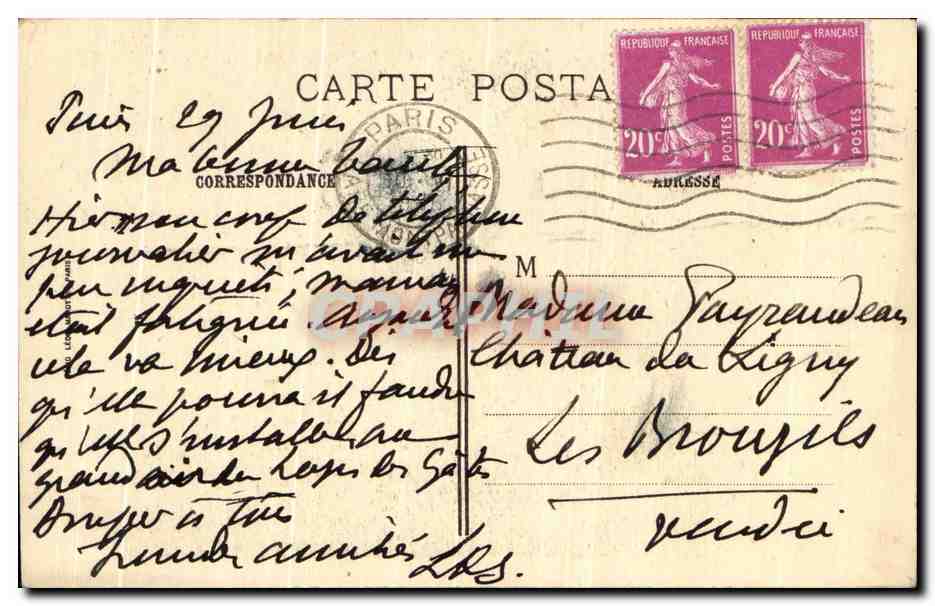 CARTE POSTA
REPUBLIQUE FRANÇAISE
20c
POSTES
REPUBLIQUE FRANÇAISE
20c
POSTES
PARIS
CORRESPONDANCE
ADRESSE
Paris 29 Juin
Ma bonne
Hier mon coup de téléphone
journalier m'avait un
peu inquiété, maman
était fatiguée.
elle va mieux. Dès
qu'elle pourra il faudra
qu'elle s'installe au
grand air du Logis des Gâts
à tous
amitiés
M
Madame Payraudeau
Château de Ligny
Les Brouzils
Vendée
CPAPHIL